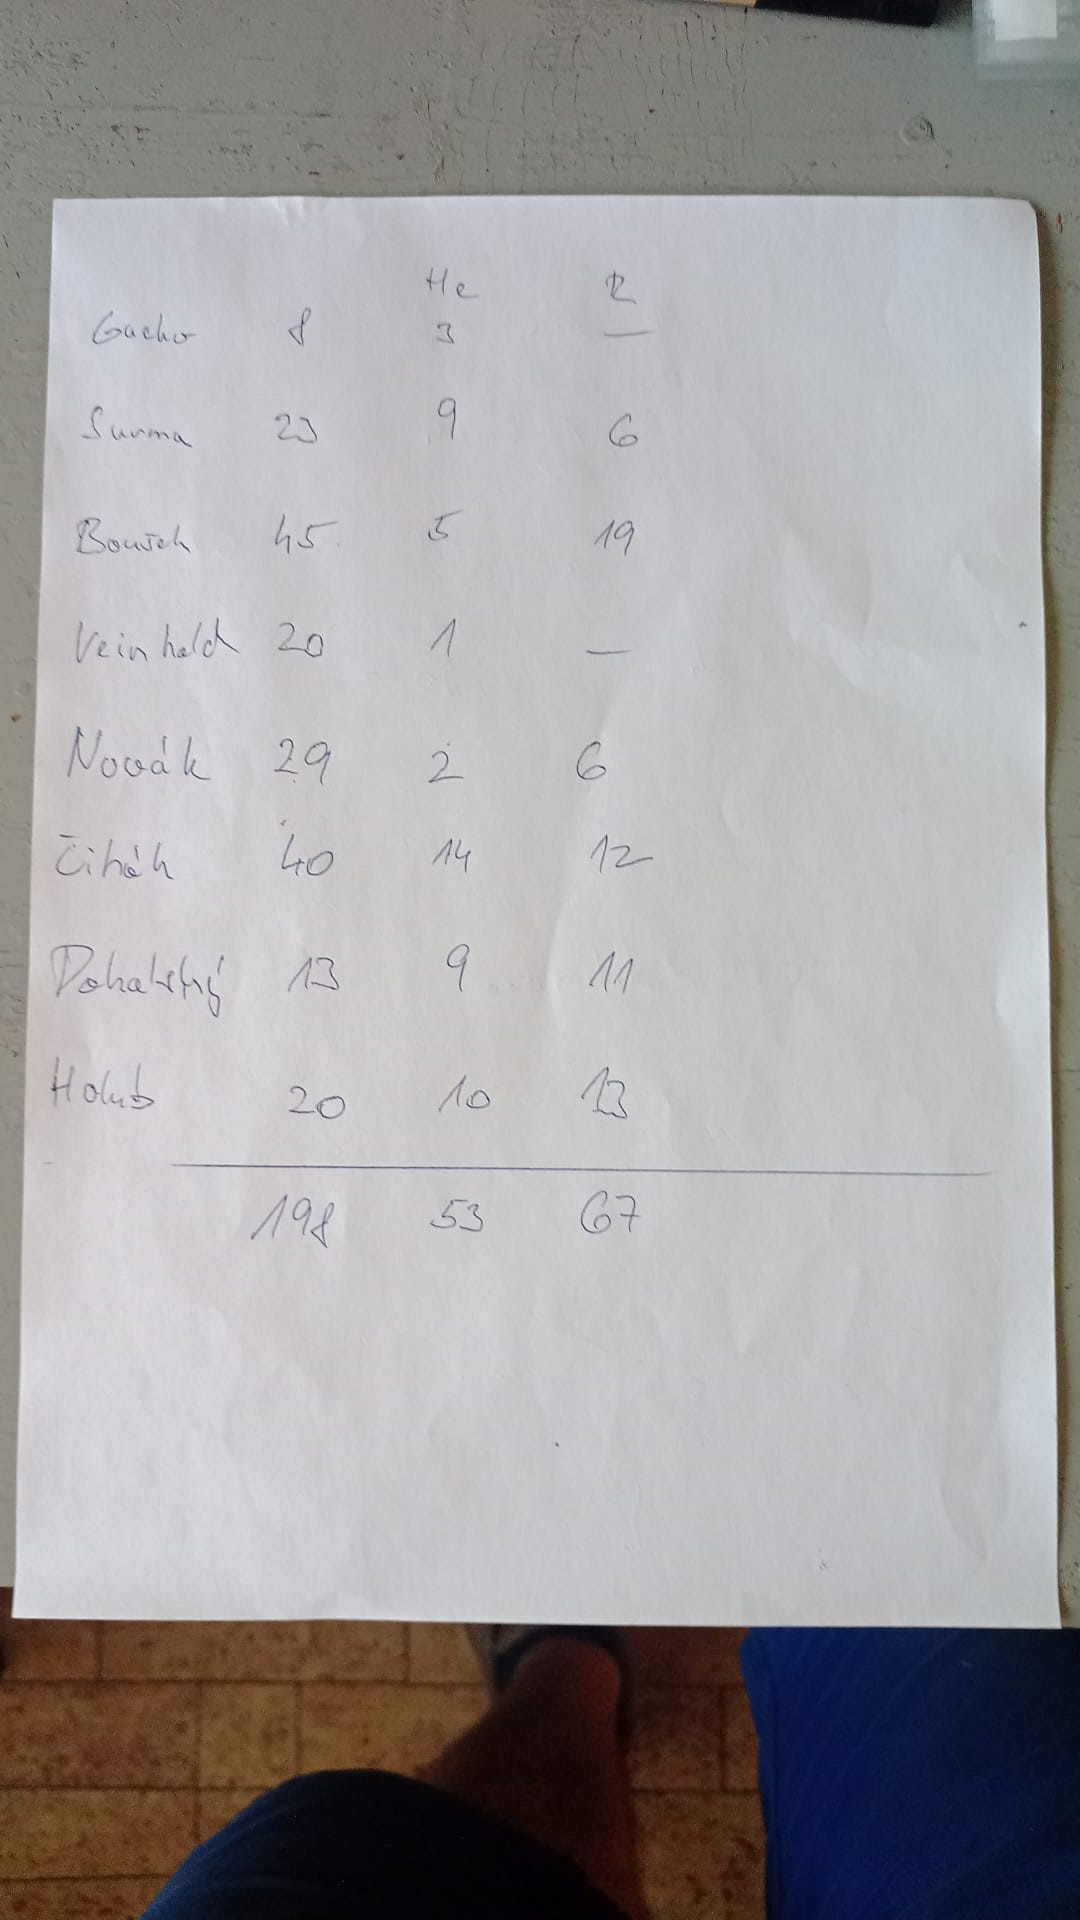 He R
Gacho 8 3 —
Surma 23 9 6
Bouček 45 5 19
Veinhold 20 1 —
Novák 29 2 6
Čihák 40 14 12
Dohalský 13 9 11
Holub 20 10 13
198 53 67